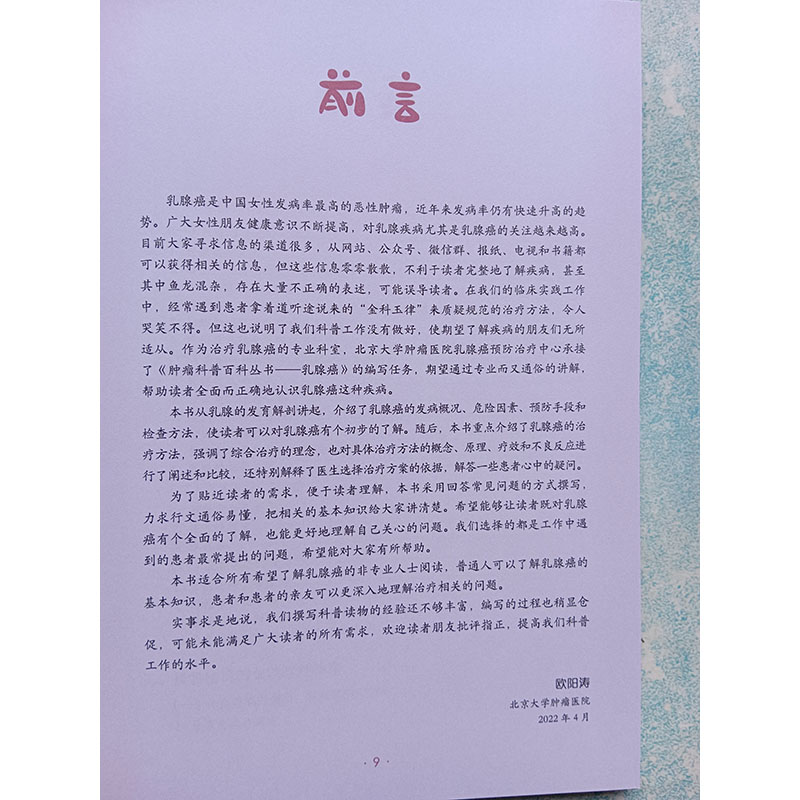 前言
乳腺癌是中国女性发病率最高的恶性肿瘤，近年来发病率仍有快速升高的趋
势。广大女性朋友健康意识不断提高，对乳腺疾病尤其是乳腺癌的关注越来越高。
目前大家寻求信息的渠道很多，从网站、公众号、微信群、报纸、电视和书籍都
可以获得相关的信息，但这些信息零零散散，不利于读者完整地了解疾病，甚至
其中鱼龙混杂，存在大量不正确的表述，可能误导读者。在我们的临床实践工作
中，经常遇到患者拿着道听途说来的“金科玉律”来质疑规范的治疗方法，令人
哭笑不得。但这也说明了我们科普工作没有做好，使期望了解疾病的朋友们无所
适从。作为治疗乳腺癌的专业科室，北京大学肿瘤医院乳腺癌预防治疗中心承接
了《肿瘤科普百科丛书——乳腺癌》的编写任务，期望通过专业而又通俗的讲解，
帮助读者全面而正确地认识乳腺癌这种疾病。
本书从乳腺的发育解剖讲起，介绍了乳腺癌的发病概况、危险因素、预防手段和
检查方法，使读者可以对乳腺癌有个初步的了解。随后，本书重点介绍了乳腺癌的治
疗方法，强调了综合治疗的理念，也对具体治疗方法的概念、原理、疗效和不良反应进
行了阐述和比较，还特别解释了医生选择治疗方案的依据，解答一些患者心中的疑问。
为了贴近读者的需求，便于读者理解，本书采用回答常见问题的方式撰写，
力求行文通俗易懂，把相关的基本知识给大家讲清楚。希望能够让读者既对乳腺
癌有个全面的了解，也能更好地理解自己关心的问题。我们选择的都是工作中遇
到的患者最常提出的问题，希望能对大家有所帮助。
本书适合所有希望了解乳腺癌的非专业人士阅读，普通人可以了解乳腺癌的
基本知识，患者和患者的亲友可以更深入地理解治疗相关的问题。
实事求是地说，我们撰写科普读物的经验还不够丰富，编写的过程也稍显仓
促，可能未能满足广大读者的所有需求，欢迎读者朋友批评指正，提高我们科普
工作的水平。
欧阳涛
北京大学肿瘤医院
2022 年 4 月
· 9 ·